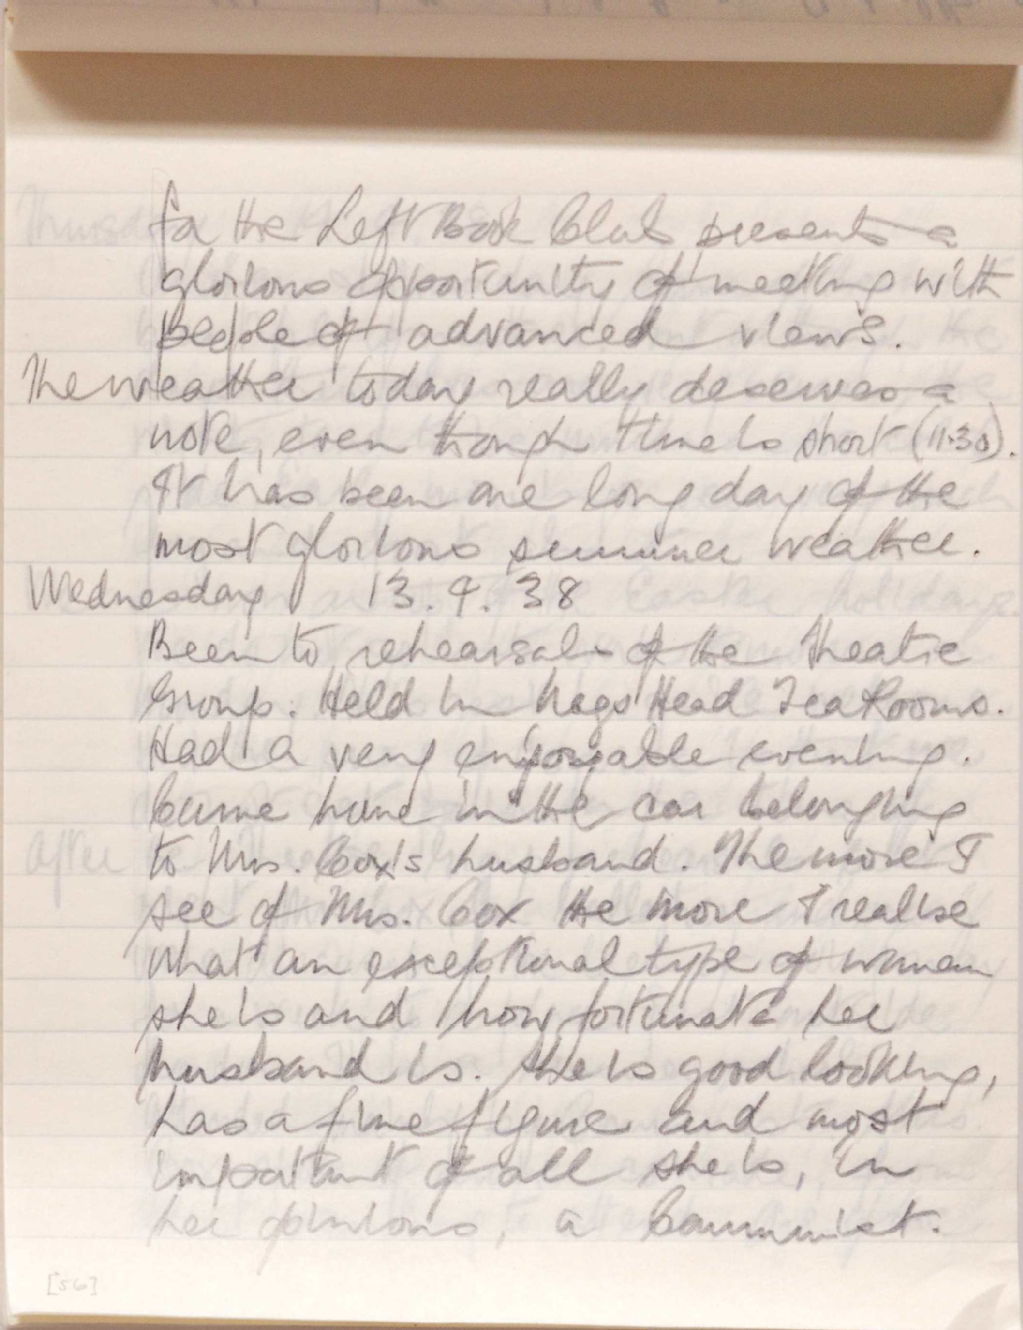 for the Left Book Club presents a
glorious opportunity of meeting with
people of advanced views.
The weather today really deserves a
note, even though time is short (11.30).
It has been one long day of the
most glorious summer weather.
Wednesday 13.4.38
Been to rehearsal of the Theatre
Group. Held in Nags Head Tea Rooms.
Had a very enjoyable evening.
Came home in the car belonging
to Mrs. Cox's husband. The more I
see of Mrs. Cox the more I realise
what an exceptional type of woman
she is and how fortunate her
husband is. She is good looking,
has a fine figure and most
important of all she is, in
her opinions, a Communist.
[56]